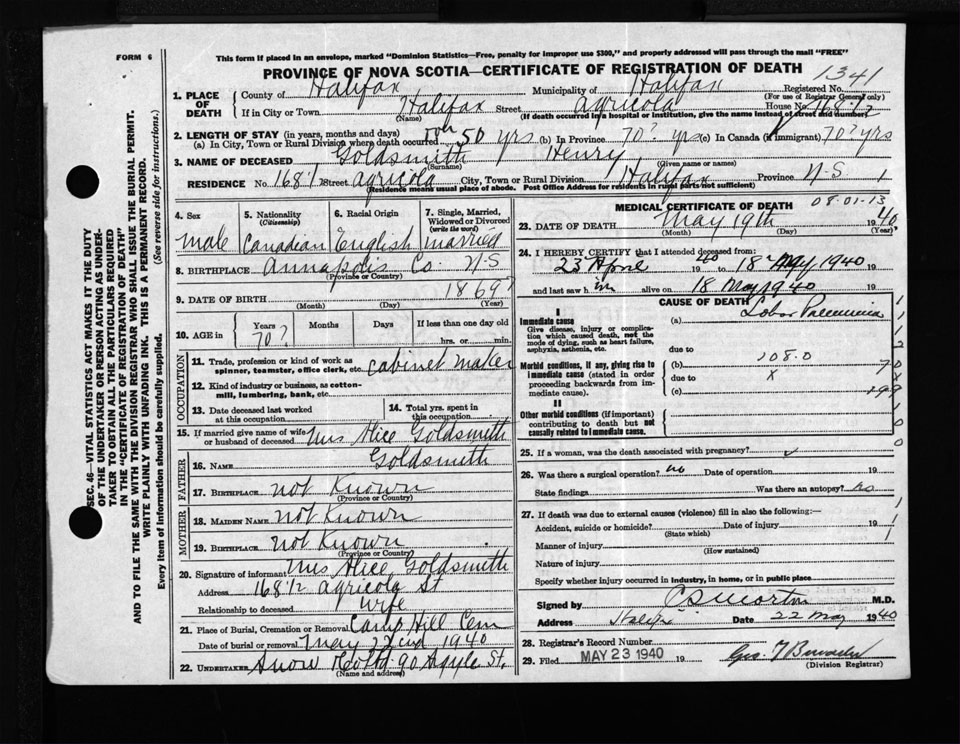 FORM 6
This form if placed in an envelope, marked "Dominion Statistics—Free, penalty for improper use $300," and property addressed will pass through the mail "FREE"
PROVINCE OF NOVA SCOTIA—CERTIFICATE OF REGISTRATION OF DEATH
1341
1. PLACE OF DEATH
County of Halifax Municipality of Halifax Registered No.
(For use of Registrar General only)
If in City or Town Halifax Street Agricola House No. 168 1/2
(Name) (If death occurred in a hospital or institution, give the name instead of street and number)
2. LENGTH OF STAY (in years, months and days)
(a) In City, Town or Rural Division where death occurred 50 yrs (b) In Province 70? yrs (c) In Canada (if immigrant) 70? yrs
3. NAME OF DECEASED Goldsmith Henry
(Surname) (Given name or names)
RESIDENCE No. 168 1/2 Street Agricola City, Town or Rural Division Halifax Province N-S
(Residence means usual place of abode. Post Office Address for residents in rural parts not sufficient)
4. Sex Male
5. Nationality (Citizenship) Canadian
6. Racial Origin English
7. Single, Married, Widowed or Divorced (write the word) Married
8. BIRTHPLACE Annapolis Co. N-S
(Province or Country)
9. DATE OF BIRTH 1869?
(Month) (Day) (Year)
10. AGE in Years 70? Months Days If less than one day old hrs. or min.
OCCUPATION
11. Trade, profession or kind of work as spinner, teamster, office clerk, etc. Cabinet Maker
12. Kind of industry or business, as cotton-mill, lumbering, bank, etc.
13. Date deceased last worked at this occupation
14. Total yrs. spent in this occupation
15. If married give name of wife or husband of deceased Mrs Alice Goldsmith
FATHER
16. NAME Goldsmith
17. BIRTHPLACE Not Known
(Province or Country)
MOTHER
18. MAIDEN NAME Not Known
19. BIRTHPLACE Not Known
(Province or Country)
20. Signature of informant Mrs Alice Goldsmith
Address 168 1/2 Agricola St
Relationship to deceased Wife
21. Place of Burial, Cremation or Removal Camp Hill Cem
Date of burial or removal May 22nd 1940
22. UNDERTAKER Snow & Co Ltd. 90 Argyle St.
(Name and address)
MEDICAL CERTIFICATE OF DEATH
08-01-13
23. DATE OF DEATH May 19th 1940
(Month) (Day) (Year)
24. I HEREBY CERTIFY that I attended deceased from:
23 April 1940 to 18 May 1940 19
and last saw him alive on 18 May 1940 19
CAUSE OF DEATH
I
Immediate cause
Give disease, injury or complication which caused death, not the mode of dying, such as heart failure, asphyxia, asthenia, etc.
(a) Lobar Pneumonia
due to
Morbid conditions, if any, giving rise to immediate cause (stated in order proceeding backwards from immediate cause).
(b) 108.0
due to x
(c)
II
Other morbid conditions (if important) contributing to death but not causally related to immediate cause.
25. If a woman, was the death associated with pregnancy?
26. Was there a surgical operation? no Date of operation 19
State findings Was there an autopsy? no
27. If death was due to external causes (violence) fill in also the following:—
Accident, suicide or homicide? Date of injury 19
(State which)
Manner of injury
(How sustained)
Nature of injury
Specify whether injury occurred in industry, in home, or in public place
Signed by C S Morton M.D.
Address Halifax Date 22 May 1940
28. Registrar's Record Number
29. Filed MAY 23 1940 19
(Division Registrar)
SEC. 46—VITAL STATISTICS ACT MAKES IT THE DUTY
OF THE UNDERTAKER OR PERSON ACTING AS UNDER-
TAKER TO OBTAIN ALL THE PARTICULARS REQUIRED
IN THE "CERTIFICATE OF REGISTRATION OF DEATH"
AND TO FILE THE SAME WITH THE DIVISION REGISTRAR WHO SHALL ISSUE THE BURIAL PERMIT.
WRITE PLAINLY WITH UNFADING INK. THIS IS A PERMANENT RECORD.
Every item of information should be carefully supplied. (See reverse side for instructions.)